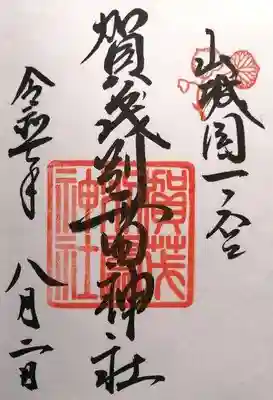 山城國一之宮
賀茂別雷神社
令和七年 八月二日
賀茂別雷神社